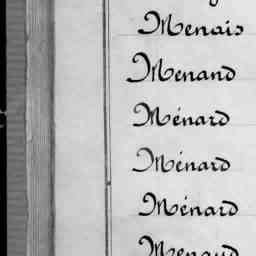 Menais
Menand
Ménard
Ménard
Ménard
Menaud